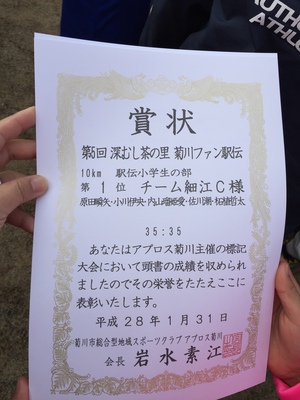 AUTHENTIC
ATHLE
賞状
第6回 深むし茶の里 菊川ファン駅伝
10km 駅伝小学生の部
第1位 チーム細江C様
35:35
あなたはアプロス菊川主催の標記
大会において頭書の成績を収められ
ましたのでその栄誉をたたえここに
表彰いたします。
平成28年1月31日
菊川市総合型地域スポーツクラブ アプロス菊川
会長 岩水素江